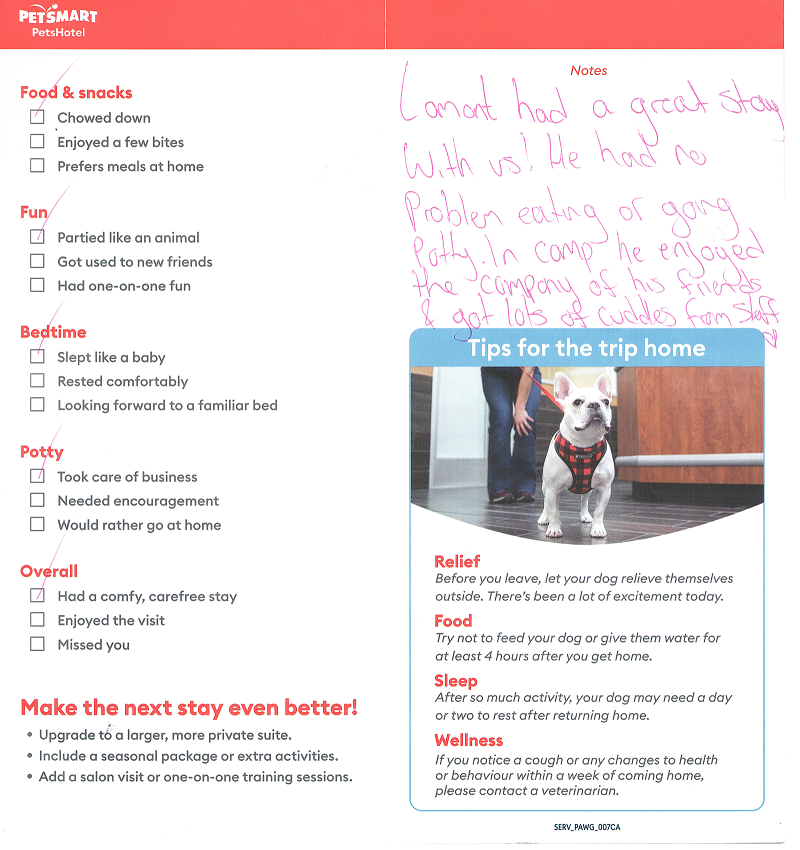 PETSMART
PetsHotel
Food & snacks
Chowed down
Enjoyed a few bites
Prefers meals at home
Fun
Partied like an animal
Got used to new friends
Had one-on-one fun
Bedtime
Slept like a baby
Rested comfortably
Looking forward to a familiar bed
Potty
Took care of business
Needed encouragement
Would rather go at home
Overall
Had a comfy, carefree stay
Enjoyed the visit
Missed you
Make the next stay even better!
• Upgrade to a larger, more private suite.
• Include a seasonal package or extra activities.
• Add a salon visit or one-on-one training sessions.
Notes
Lamont had a great stay
With us! He had no
Problem eating or going
Potty. In camp he enjoyed
the company of his friends
& got lots of cuddles from staff
Tips for the trip home
Relief
Before you leave, let your dog relieve themselves
outside. There's been a lot of excitement today.
Food
Try not to feed your dog or give them water for
at least 4 hours after you get home.
Sleep
After so much activity, your dog may need a day
or two to rest after returning home.
Wellness
If you notice a cough or any changes to health
or behaviour within a week of coming home,
please contact a veterinarian.
SERV_PAWG_007CA